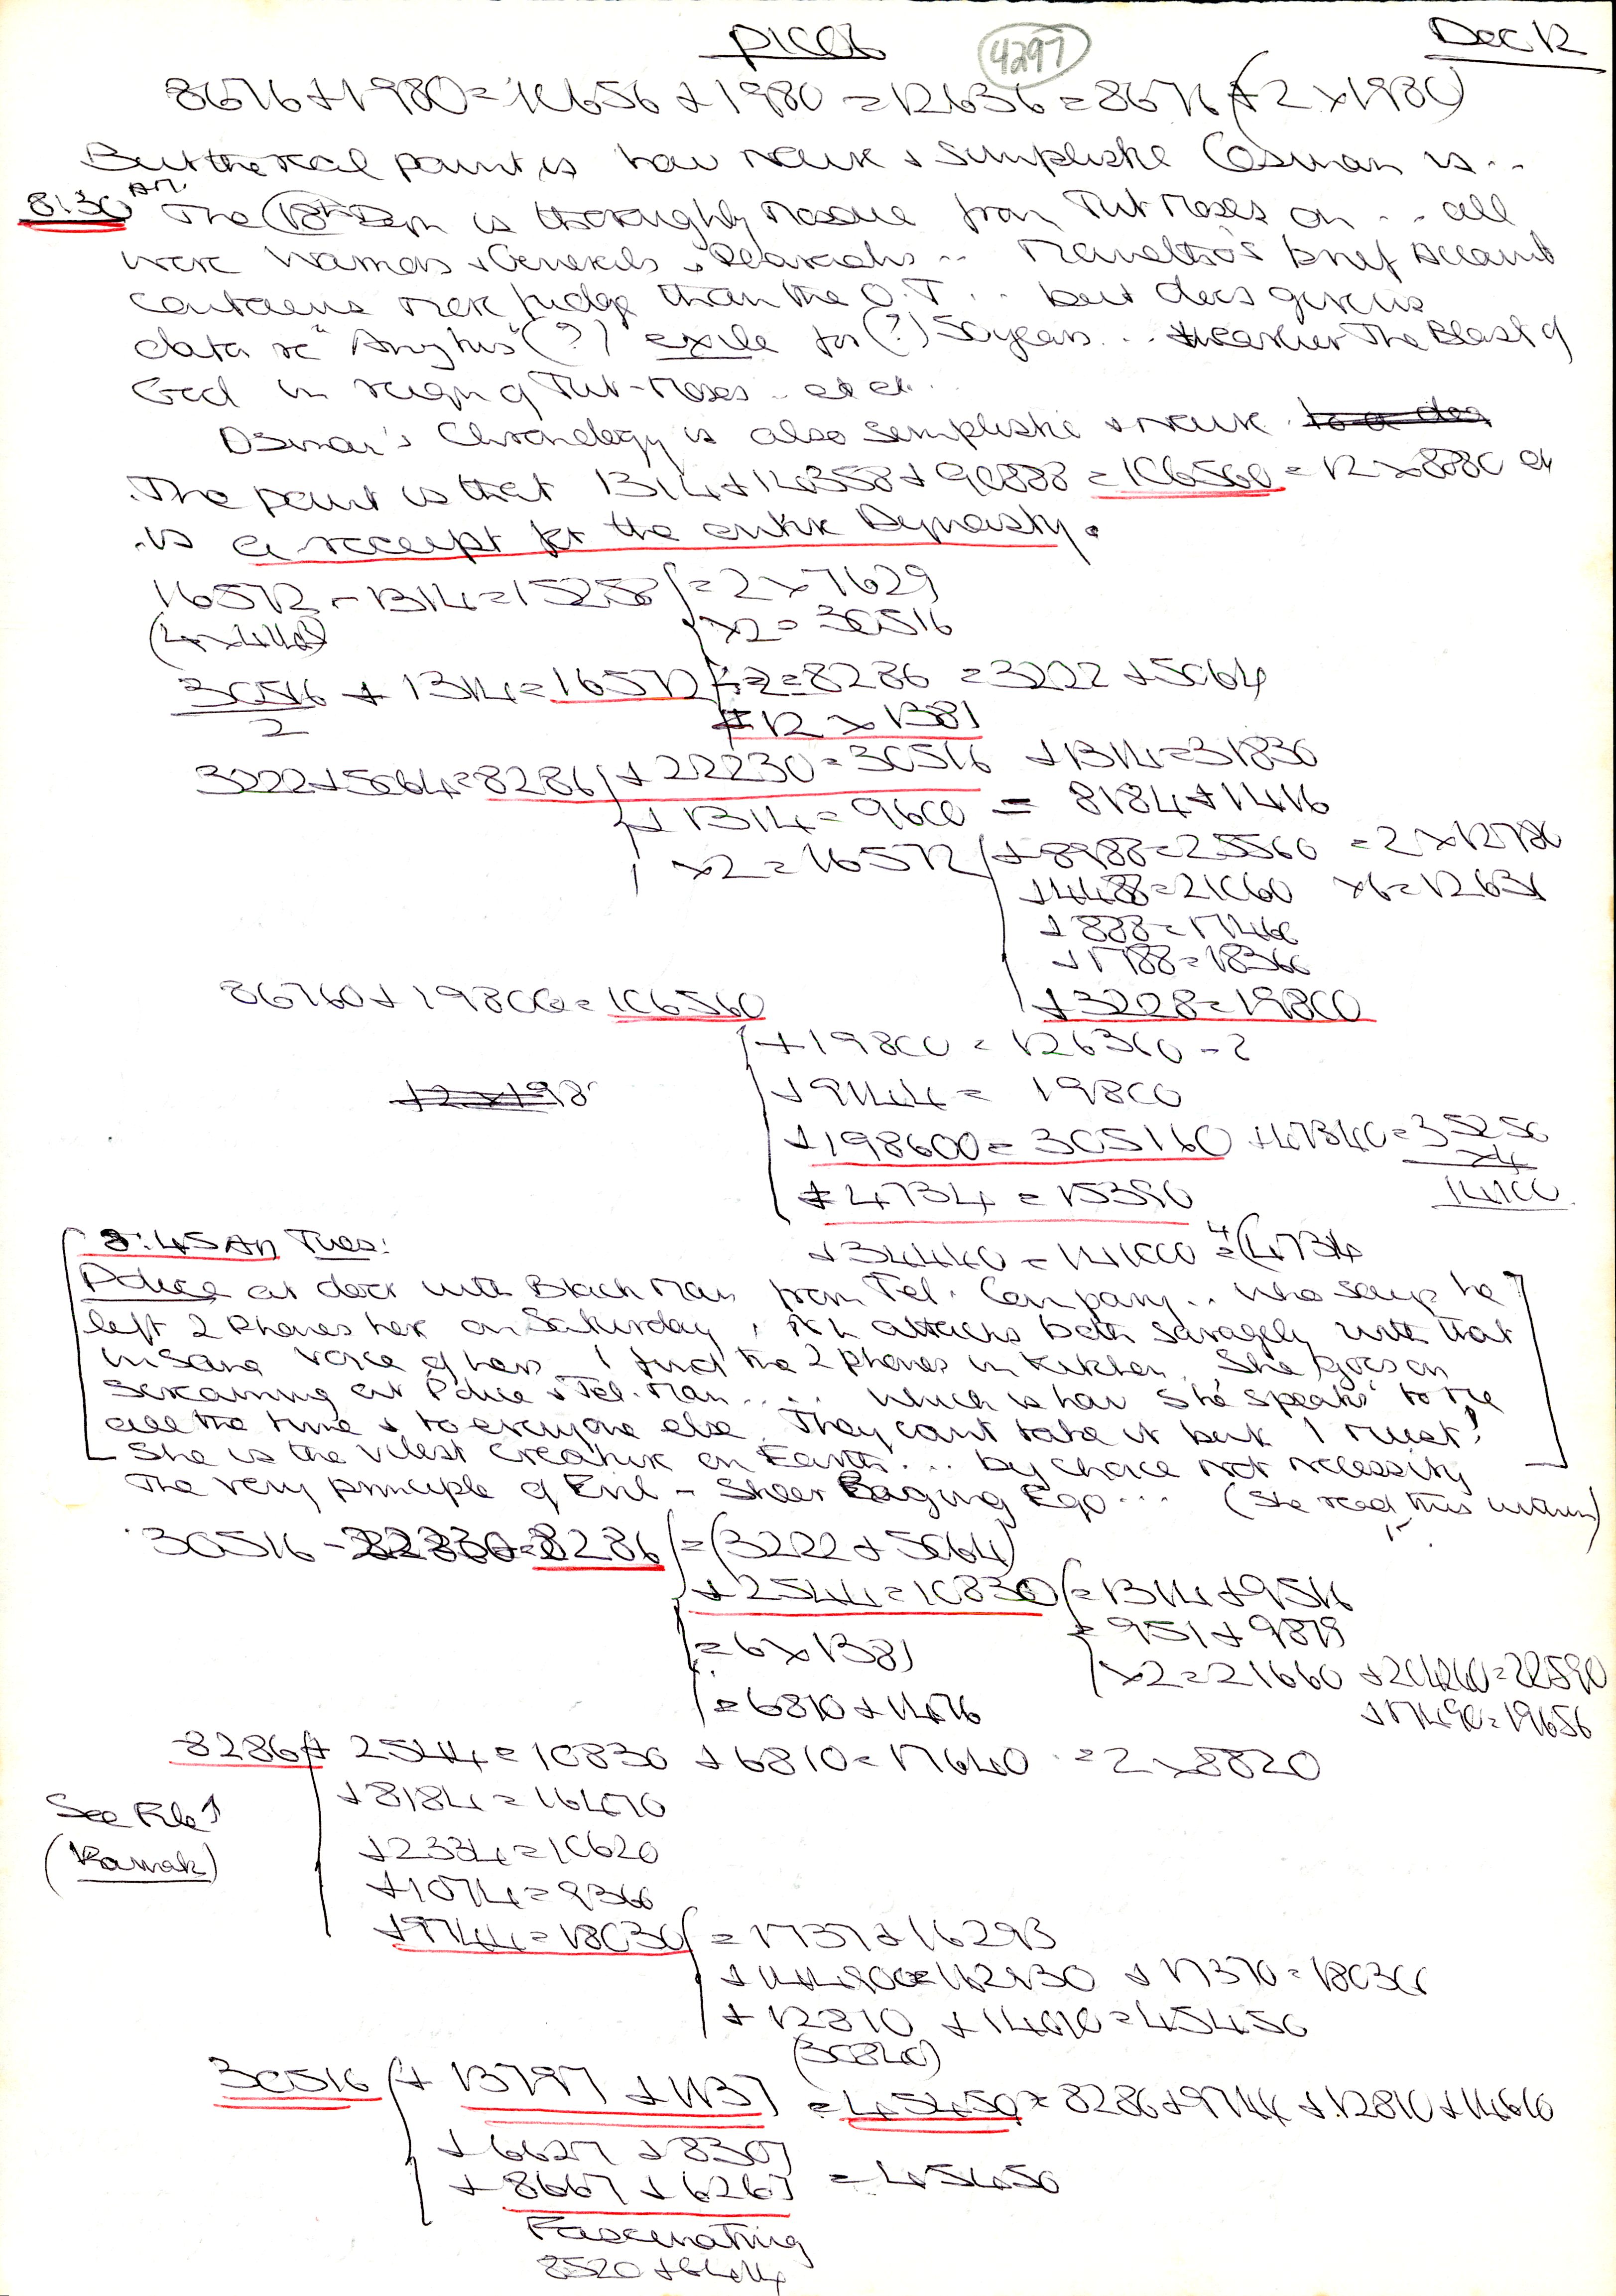 4297
Dec 12
8676 + 1980 = 10656 + 1980 = 12636 = 8676 (+ 2 x 1980)
But the real point is how naive & simplistic Osman is ..
8:30 AM The 18th Dyn is thoroughly Mosaic from Tut Moses on ... all
were Warriors & Generals & .. Manetho's brief Account
contains more fudge than the O.T ... but does give us
data re " " (?) exile for (?) 50 years ... earlier The Blast of
God in reign of Tut-Moses .. etc.
Osman's Chronology is also simplistic & naive to a deg
The point is that 1314 + 14358 + 90888 = 106560 = 12 x 8880 &
is a receipt for the entire Dynasty.
16572 - 1314 = 15258 = 2 x 7629
x2 = 30516
30516/2 + 1314 = 16572 ÷ 2 = 8286 = 3222 + 5064
= 12 x 1381
3222 + 5064 = 8286 + 22230 = 30516 + 1314 = 31830
+ 1314 = 9600 = 8184 + 1416
x2 = 16572 + 8988 = 25560 = 2 x 12780
+ 4488 = 21060 x6 = 12636
+ 888 = 17460
+ 1788 = 18360
86760 + 19800 = 106560
+ 3228 = 19800
+ 19800 = 126360 - 2
+ 9144 = 19800
+ 198600 = 305160 + 47340 = 352500
x4
14100
+ 4734 = 15390
8:45 AM Tues:
+ 34440 = 141000 = 4(4734
Police at door with Black Man from Tel. Company .. who says he
left 2 Phones here on Saturday, attacks both savagely with that
insane voice of hers. I find the 2 phones in kitchen. She goes on
screaming at Police & Tel. Man .... which is how she 'speaks' to me
all the time & to everyone else. They can't take it but I must!
She is the vilest Creature on Earth ... by choice not necessity
The very principle of Evil - Sheer Raging Ego ... (She read this )
30516 - 22230 = 8286 = (3222 + 5064)
+ 2544 = 10830 = 1314 + 9516
= 951 + 9879
= 6 x 1381
x2 = 21660
= 6810 + 1476
+ 17490 = 19656
8286 + 2544 = 10830 + 6810 = 17640 = 2 x 8820
+ 8184 = 16470
See File
+ 2334 = 10620
(Karnak)
+ 1074 = 9360
+ 9744 = 18030 = 1737 + 16293
+ 17370 = 180300
+ 12810 + 14610 = 45450
(30840)
30516 + 13797 + 1137 = 45450 = 8286 + 9744 + 12810 + 14610
+ 6627 + 8307
+ 8667 + 6267 = 45450
Fascinating
8520 + 6414